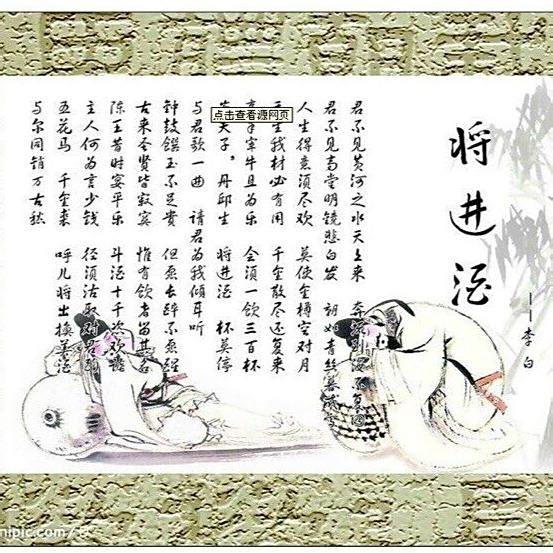 将进酒
——李白
君不见黄河之水天上来 奔流到海不复回
君不见高堂明镜悲白发 朝如青丝暮成
人生得意须尽欢 莫使金樽空对月
生我材必有用 千金散尽还复来
宰牛且为乐 会须一饮三百杯
夫子。丹邱生 将进酒 杯莫停
与君歌一曲 请君为我倾耳听
钟鼓馔玉不足贵 但愿长醉不愿醒
古来圣贤皆寂寞 惟有饮者留其名
陈王昔时宴平乐 斗酒十千恣欢谑
主人何为言少钱 径须沽取对君酌
五花马 千金裘 呼儿将出换美酒
与尔同销万古愁
点击查看源网页
nipic.com/